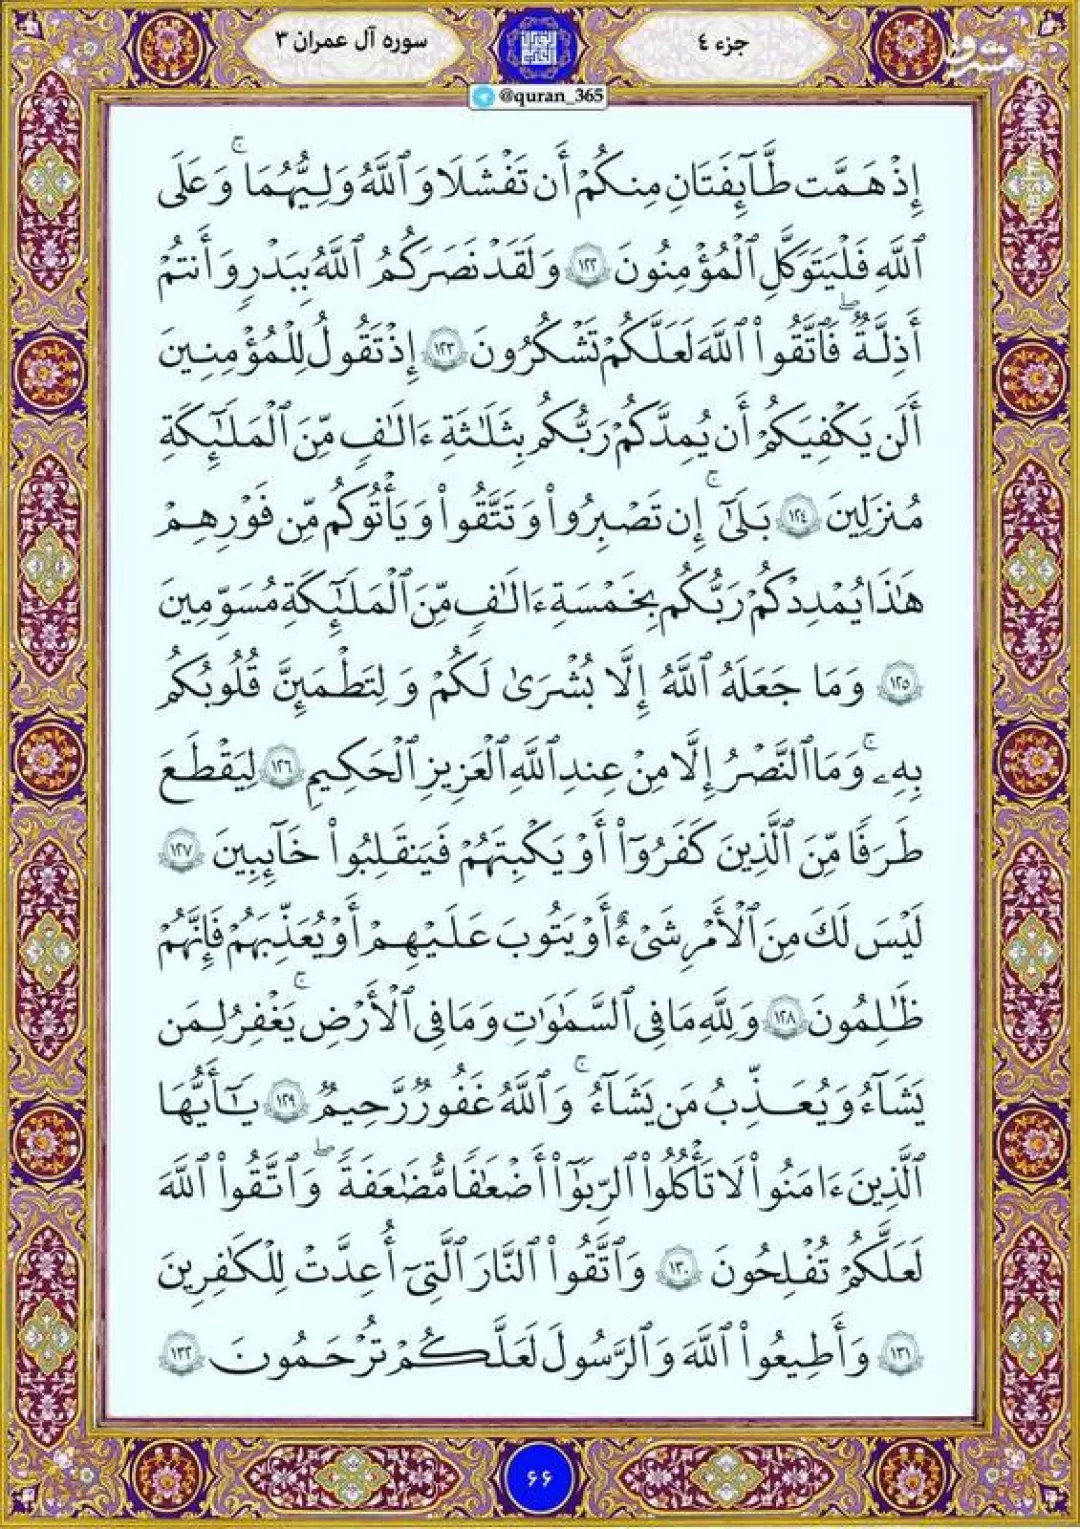 جزء ۴
سوره آل عمران ۳
@quran_365
إِذْ هَمَّت طَّآئِفَتَانِ مِنكُمْ أَن تَفْشَلَا وَٱللَّهُ وَلِيُّهُمَا ۚ وَعَلَى
ٱللَّهِ فَلْيَتَوَكَّلِ ٱلْمُؤْمِنُونَ ١٢٢ وَلَقَدْ نَصَرَكُمُ ٱللَّهُ بِبَدْرٍ وَأَنتُمْ
أَذِلَّةٌ ۖ فَٱتَّقُوا۟ ٱللَّهَ لَعَلَّكُمْ تَشْكُرُونَ ١٢٣ إِذْ تَقُولُ لِلْمُؤْمِنِينَ
أَلَن يَكْفِيَكُمْ أَن يُمِدَّكُمْ رَبُّكُم بِثَلَٰثَةِ ءَالَٰفٍ مِّنَ ٱلْمَلَٰٓئِكَةِ
مُنزَلِينَ ١٢٤ بَلَىٰٓ ۚ إِن تَصْبِرُوا۟ وَتَتَّقُوا۟ وَيَأْتُوكُم مِّن فَوْرِهِمْ
هَٰذَا يُمْدِدْكُمْ رَبُّكُم بِخَمْسَةِ ءَالَٰفٍ مِّنَ ٱلْمَلَٰٓئِكَةِ مُسَوِّمِينَ
١٢٥ وَمَا جَعَلَهُ ٱللَّهُ إِلَّا بُشْرَىٰ لَكُمْ وَلِتَطْمَئِنَّ قُلُوبُكُم
بِهِۦ ۗ وَمَا ٱلنَّصْرُ إِلَّا مِنْ عِندِ ٱللَّهِ ٱلْعَزِيزِ ٱلْحَكِيمِ ١٢٦ لِيَقْطَعَ
طَرَفًا مِّنَ ٱلَّذِينَ كَفَرُوٓا۟ أَوْ يَكْبِتَهُمْ فَيَنقَلِبُوا۟ خَآئِبِينَ ١٢٧
لَيْسَ لَكَ مِنَ ٱلْأَمْرِ شَىْءٌ أَوْ يَتُوبَ عَلَيْهِمْ أَوْ يُعَذِّبَهُمْ فَإِنَّهُمْ
ظَٰلِمُونَ ١٢٨ وَلِلَّهِ مَا فِى ٱلسَّمَٰوَٰتِ وَمَا فِى ٱلْأَرْضِ ۚ يَغْفِرُ لِمَن
يَشَآءُ وَيُعَذِّبُ مَن يَشَآءُ ۚ وَٱللَّهُ غَفُورٌ رَّحِيمٌ ١٢٩ يَٰٓأَيُّهَا
ٱلَّذِينَ ءَامَنُوا۟ لَا تَأْكُلُوا۟ ٱلرِّبَوٰٓا۟ أَضْعَٰفًا مُّضَٰعَفَةً ۖ وَٱتَّقُوا۟ ٱللَّهَ
لَعَلَّكُمْ تُفْلِحُونَ ١٣٠ وَٱتَّقُوا۟ ٱلنَّارَ ٱلَّتِىٓ أُعِدَّتْ لِلْكَٰفِرِينَ
١٣١ وَأَطِيعُوا۟ ٱللَّهَ وَٱلرَّسُولَ لَعَلَّكُمْ تُرْحَمُونَ ١٣٢
۶۶